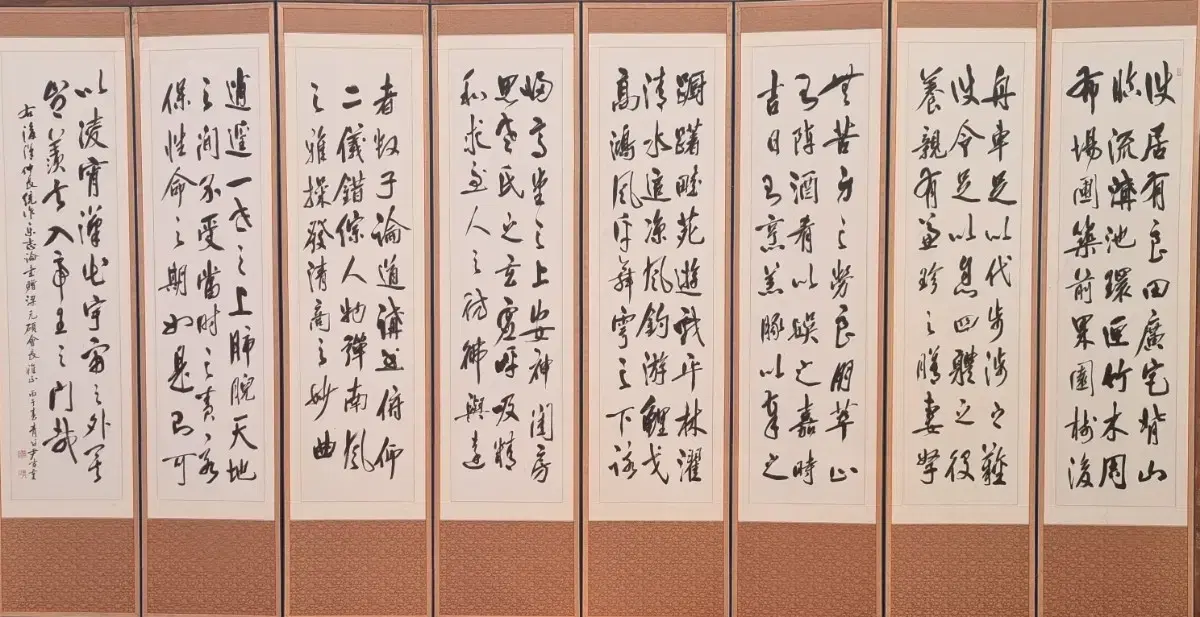 使居有良田廣宅背山
臨流溝池環匝竹木周
布場圃築前果園樹後
舟車足以代步涉之難
使令足以息四體之役
養親有兼珍之膳妻孥
無苦身之勞良朋萃止
則陳酒肴以娛之嘉時
吉日則烹羔豚以奉之
躕躇畦苑遊戲平林濯
清水追涼風釣游鯉弋
高鴻風乎舞雩之下詠
歸高堂之上安神閨房
思老氏之玄虛呼吸精
和求至人之彷彿與達
者數子論道講書俯仰
二儀錯綜人物彈南風
之雅操發清商之妙曲
逍遙一世之上睥睨天地
之間不受當時之責永
保性命之期如是則可
以凌霄漢出宇宙之外矣
豈羨夫入帝王之門哉
右後漢仲長統作樂志論 贈梁元碩會長雅正 丙子春青谷尹吉重